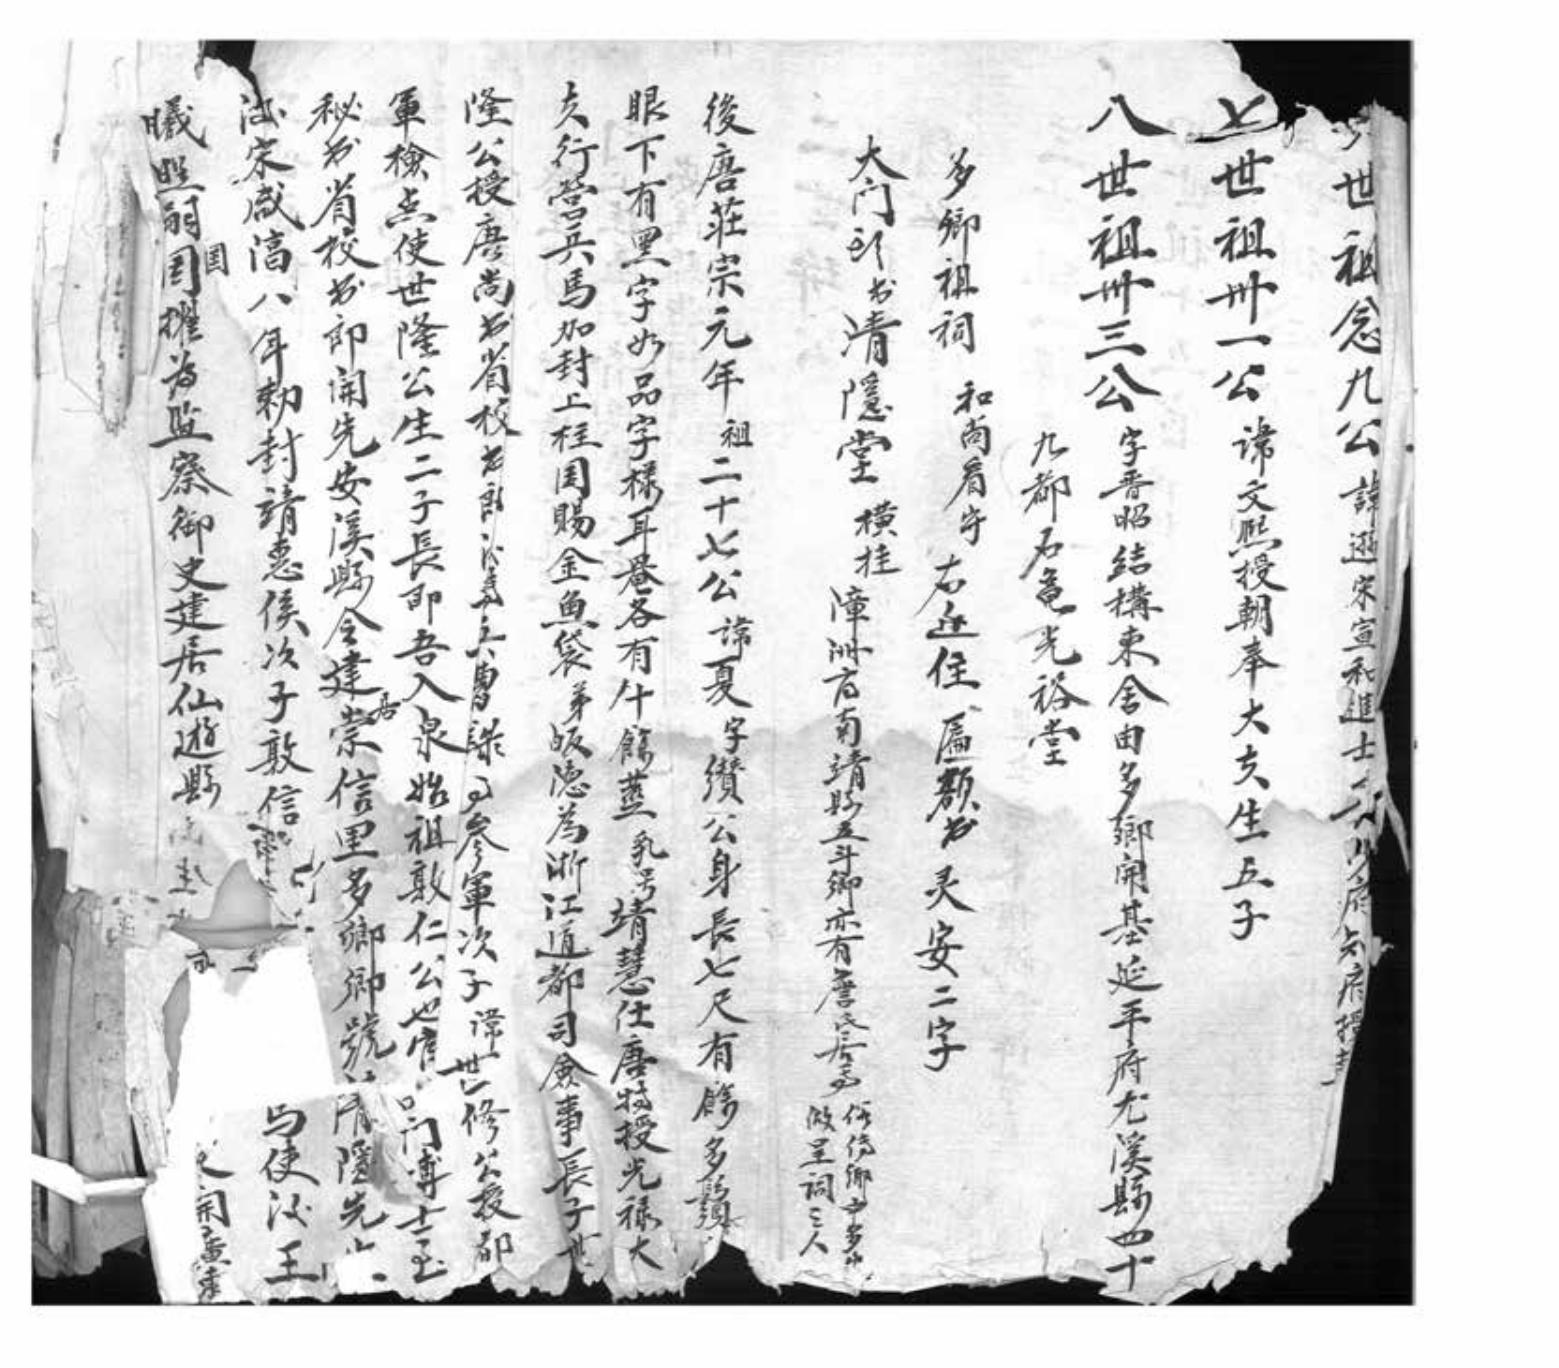 世祖念九公諱遜宋宣和進士
七世祖卅一公諱文熙授朝奉大夫生五子
八世祖卅三公字晋昭結構東舍由多鄉開基延平府尤溪縣四十
九都石龟光裕堂
多鄉祖祠和尚看守右边住匾额书灵安二字
大门书清隱堂横挂漳洲府南靖縣五斗鄉亦有詹氏居
做呈詞三人
後唐荘宗元年祖二十七公諱夏字纘公身長七尺有餘多鬚
眼下有黑字如品字樣耳巷各有仟餘燕乳号靖慧仕唐特授光禄大
夫行营兵馬加封上柱国賜金魚袋弟皈隐為浙江道都司僉事長子世
隆公授唐尚书省校书郎六曹錄參軍次子諱世修公授都
軍檢点使世隆公生二子長即吾入泉始祖敦仁公也官门博士至
秘书省校书郎開先安溪縣令建居崇信里多卿鄉號清隱先
宋咸淳八年勅封靖惠侯次子敦信
馬使汝王
曦照嗣国擢为监察御史建居仙遊縣
開